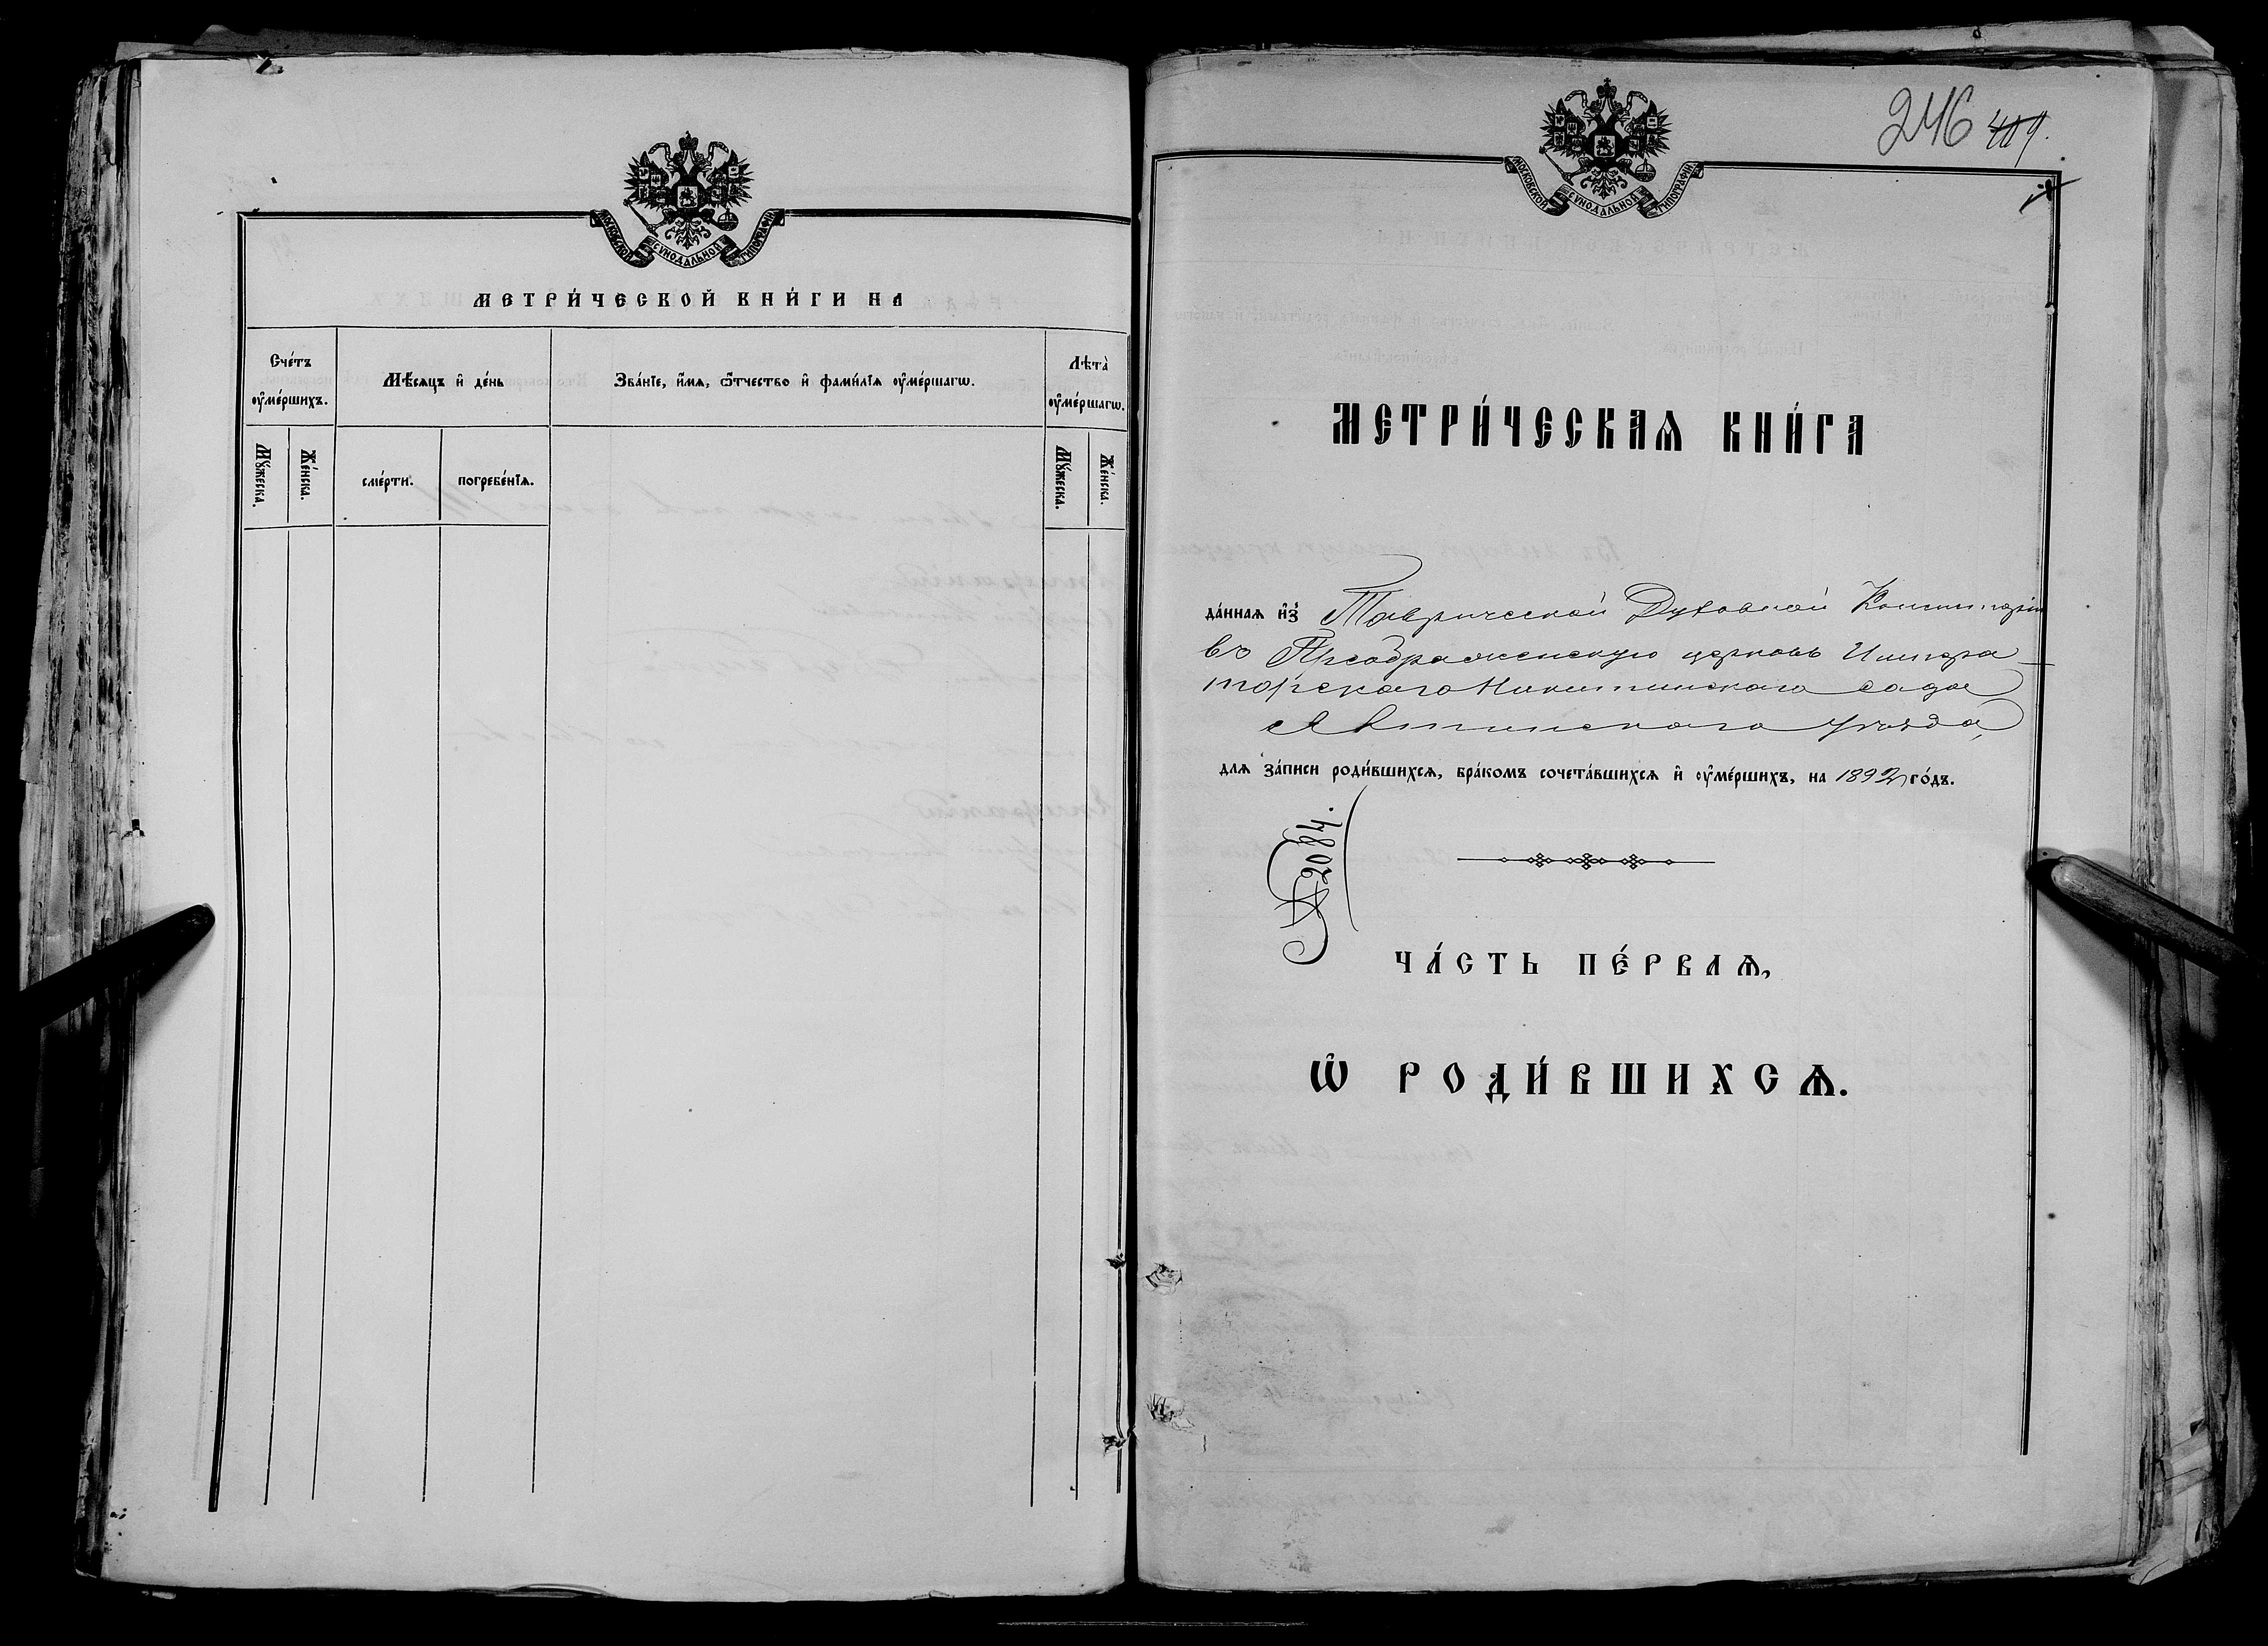 МОСКОВСКОЙ СѴНОДАЛЬНОЙ ТИПОГРАФІИ
МЕТРИ́ЧЕСКОЙ КНИ́ГИ НА
Сче́тъ ᲂу҆ме́ршихъ.
Мѣ́сяцъ и҆ де́нь
Зва́нїе, и҆́мѧ, ѻ҆́тчество и҆ фами́лїѧ ᲂу҆ме́ршагѡ.
Лѣта̀ ᲂу҆ме́ршагѡ.
Мꙋ́жеска.
Же́нска.
сме́рти.
погребе́нїѧ.
Мꙋ́жеска.
Же́нска.
246 409.
МОСКОВСКОЙ СѴНОДАЛЬНОЙ ТИПОГРАФІИ
МЕТРИ́ЧЕСКАѦ КНИ́ГА
да́ннаѧ и҆з̾ Таврической Духовной Консисторіи
въ Преображенскую церковь Импера-
торскаго Никитинскаго сада
Ялтинскаго уѣзда,
длѧ за́писи роди́вшихсѧ, бра́комъ сочета́вшихсѧ и҆ ᲂу҆ме́ршихъ, на 1892 го́дъ.
№ 2084.
ЧА́СТЬ ПЕ́РВАѦ,
Ѡ҆ РОДИ́ВШИХСѦ.